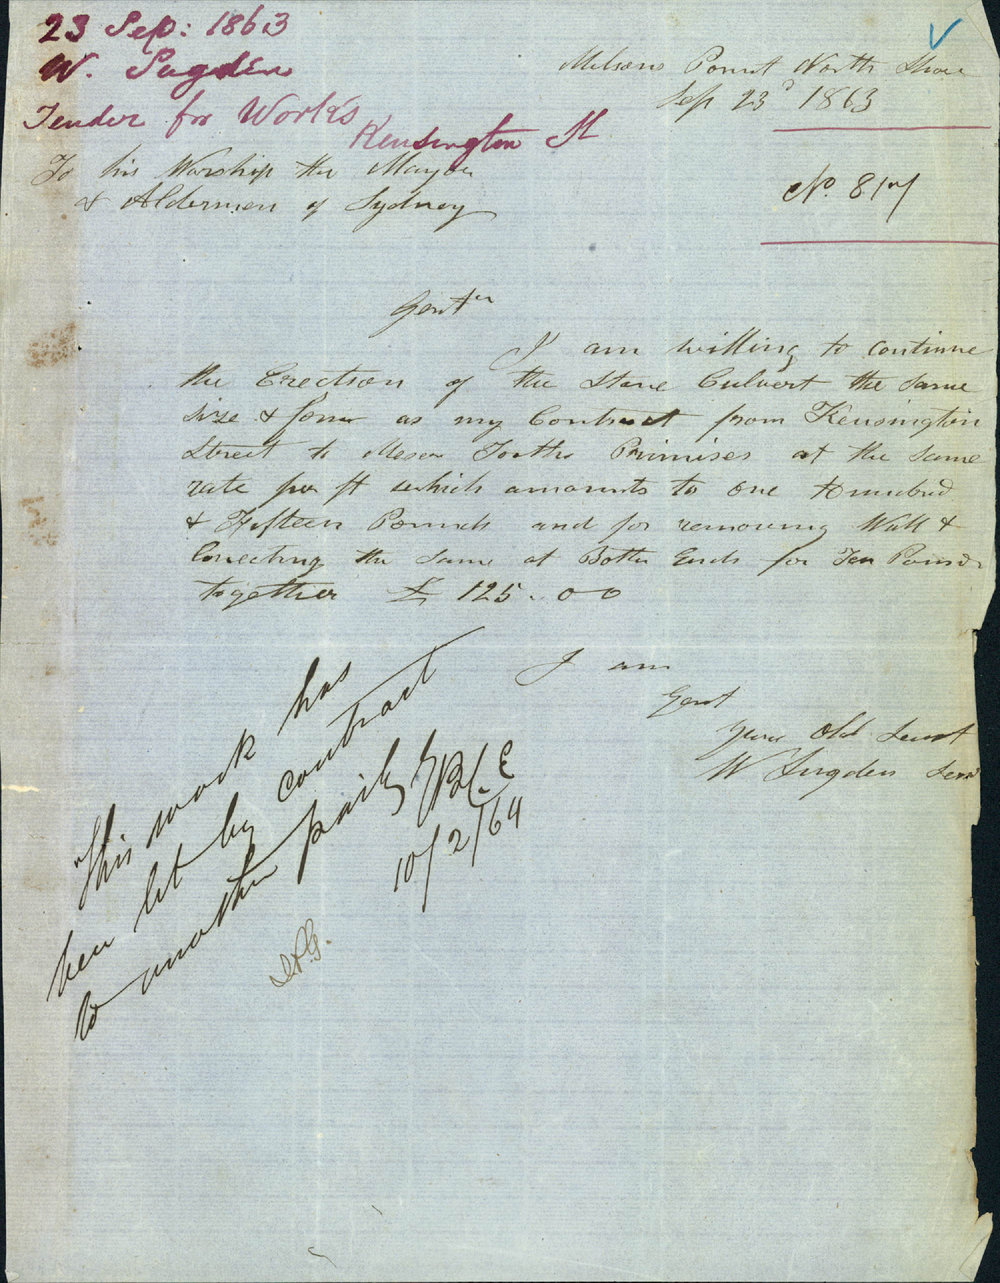 23 Sep: 1863
W. Sugden
Tender for Works
Kensington St
Milsons Point North Shore
Sep 23d 1863
No. 817
To his Worship the Mayor
& Aldermen of Sydney
Gentn
I am willing to continue
the Erection of the Stone Culvert the same
size & form as my Contract from Kensington
Street to Messr Tooths Primises at the same
rate per ft which amounts to one Hundred
& Fifteen Pounds and for removing Wall &
Conecting the same at Both Ends for Ten Pounds
together £ 125.00
I am
Gent
your Obd Servt
W Sugden Senr
This work has
been let by contract
to another party
10/2/64